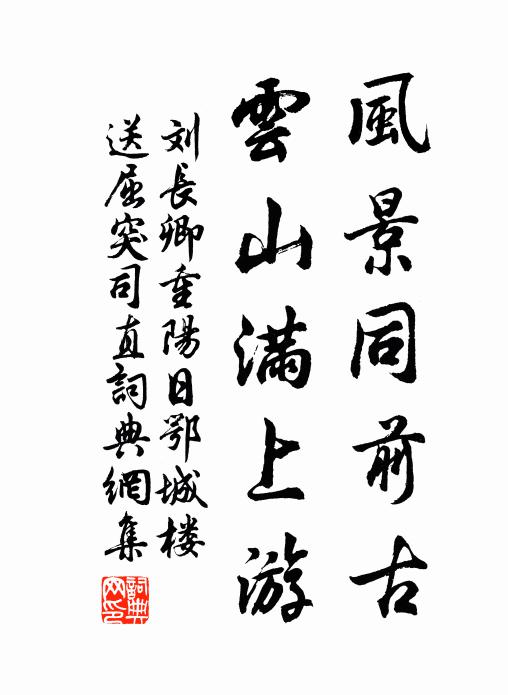 風景同前古
雲山滿上游
刘長卿重陽日鄂城楼
送屈突司直詞典網集
詞典网印